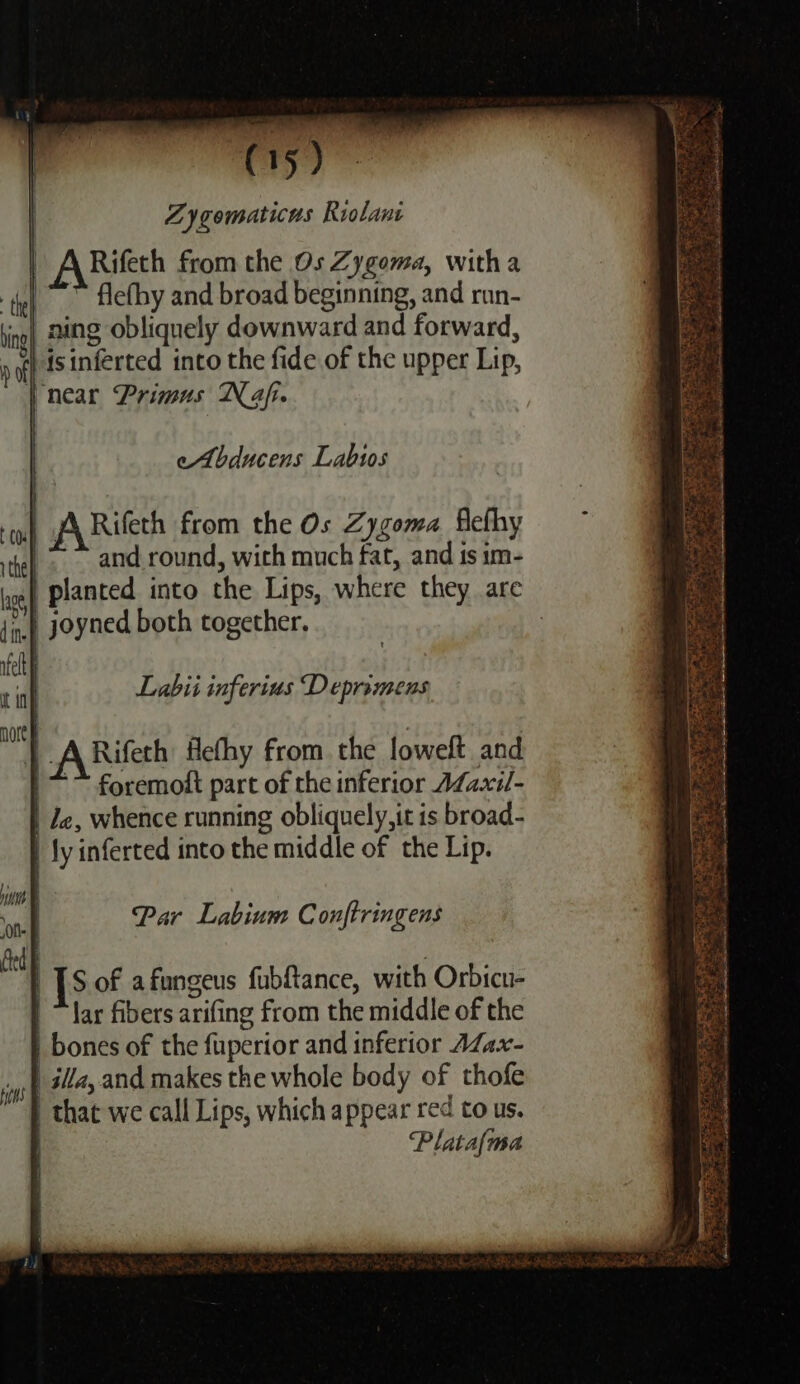 (15)
Zygomaticus Riolani
ARiſeth from the Os Zygoma, with a
fleſhy and broad beginning, and run-
ning obliquely downward and forward,
is inſerted into the ſide of the upper Lip,
near Primus Naſi.
Abducens Labios
ARiſeth from the Os Zygoma fleſhy
and round, with much fat, and is im-
planted into the Lips, where they are
joyned both together.
Labii inferius Deprimens
ARiſeth fleſhy from the loweſt and
foremoſt part of the inferior Maxil-
læ, whence running obliquely, it is broad-
ly inſerted into the middle of the Lip.
Par Labium Conſtringens
IS of a fungeus ſubſtance, with Orbicu-
lar fibers ariſing from the middle of the
bones of the ſuperior and inferior Max-
illa, and makes the whole body of thoſe
that we call Lips, which appear red to us.
Plataſma